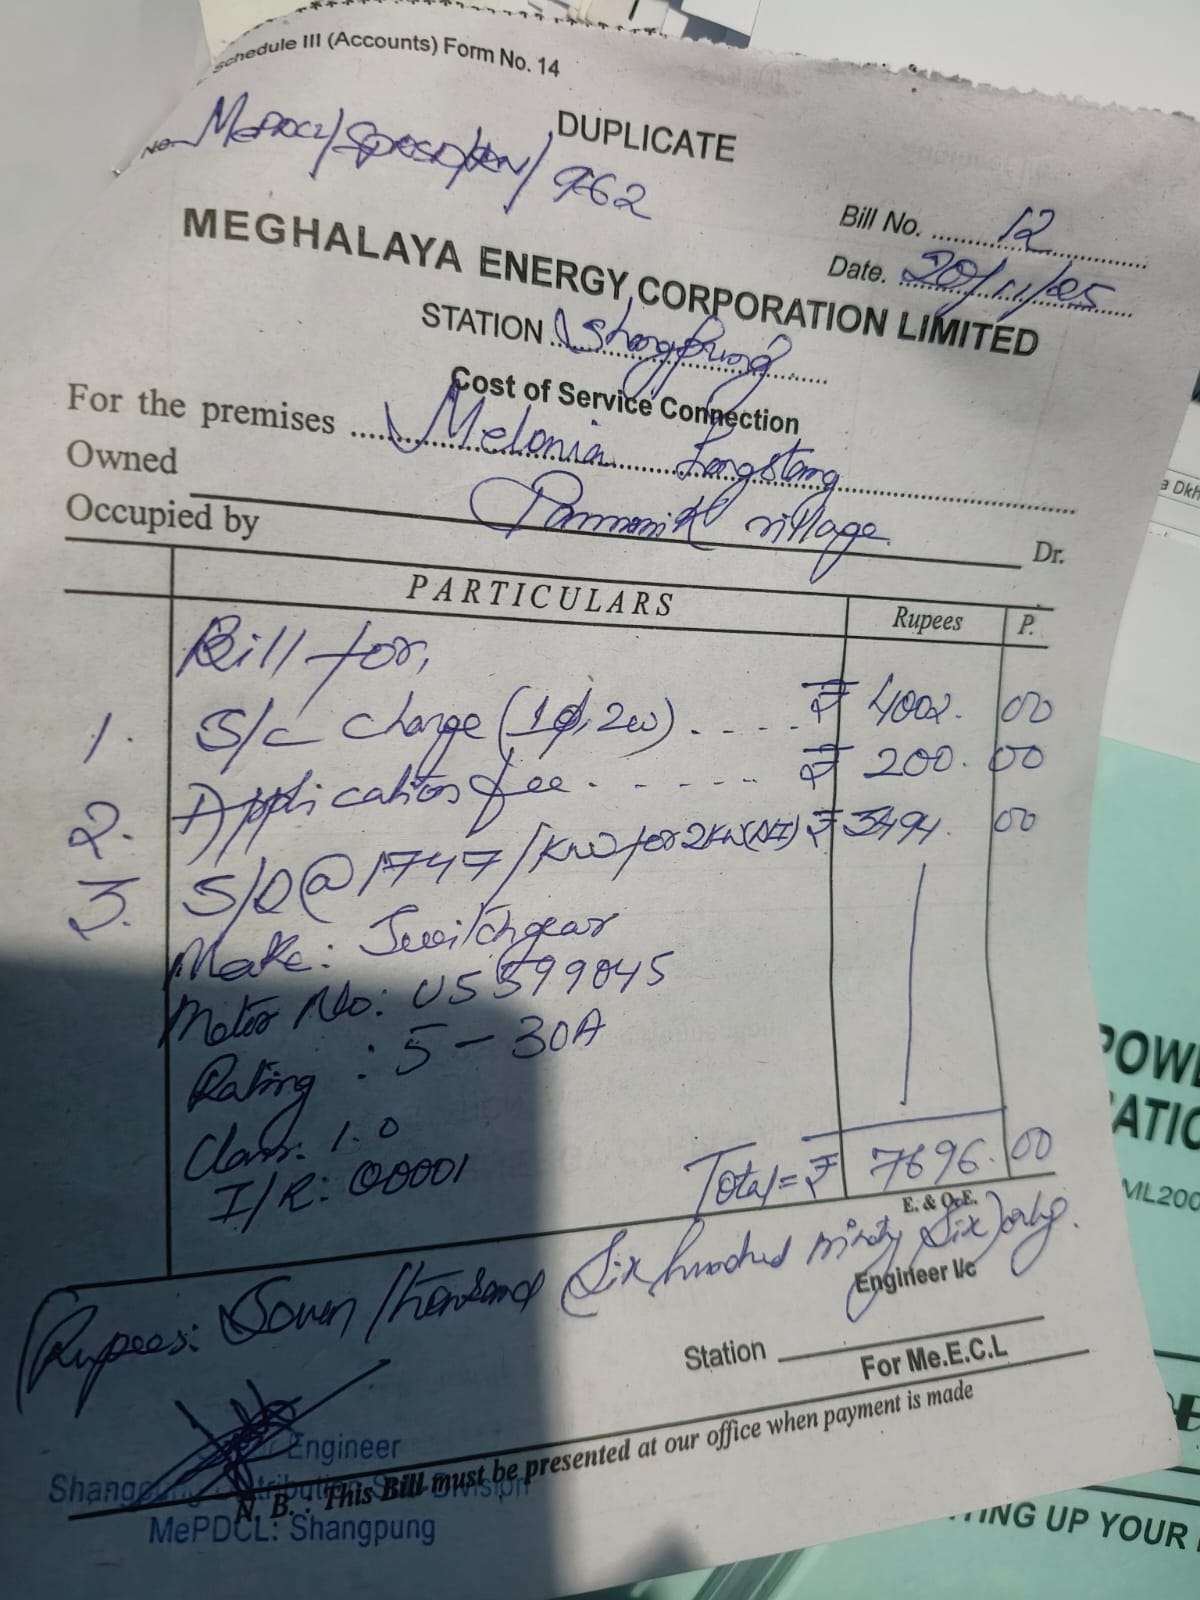 Schedule III (Accounts) Form No. 14
DUPLICATE
No. MePDCL/ / 962
Bill No. 12
Date. 20/11/25
MEGHALAYA ENERGY CORPORATION LIMITED
STATION Shangpung
Cost of Service Connection
For the premises Melonia Langstang
Owned
Occupied by Pammanik village. Dr.
PARTICULARS Rupees P.
Bill for,
1. S/C charge (1φ, 2w) ₹ 4002. 00
2. Application fee ₹ 200. 00
3. S/D @ 1747/KW for 2KW ₹ 3494. 00
Make: Switchgear
Meter No: U5599045
Rating : 5 - 30A
Class: 1.0
I/R: 00001
Total = ₹ 7696. 00
E. & O.E.
Rupees: Seven thousand Six hundred ninety Six) only.
Engineer I/c
Station
For Me.E.C.L
Engineer
Shangpung Distribution Sub Division
MePDCL: Shangpung
N. B. : This Bill must be presented at our office when payment is made
a Dkh
POWE
ATIO
ML200
TING UP YOUR